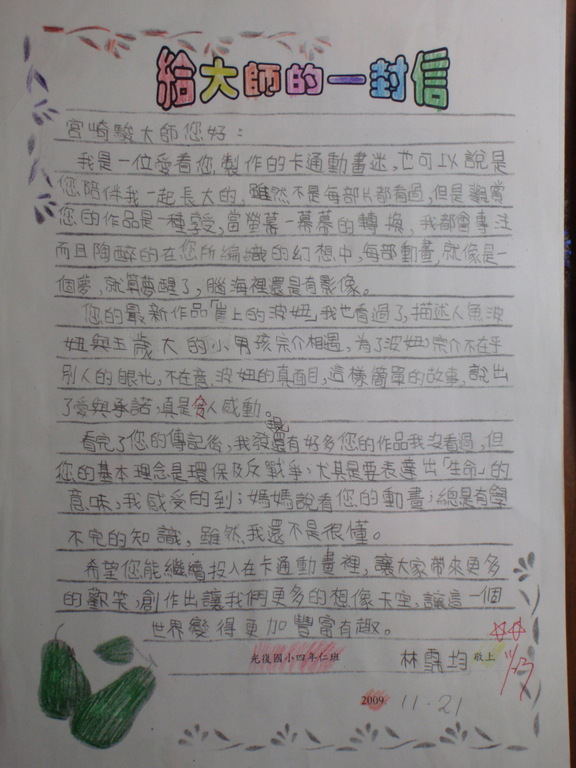 給大師的一封信
宮崎駿大師您好：
我是一位愛看您製作的卡通動畫迷，也可以說是
您陪伴我一起長大的，雖然不是每部片都看過，但是觀賞
您的作品是一種享受，當螢幕一幕幕的轉換，我都會專注
而且陶醉的在您所編織的幻想中，每部動畫，就像是一
個夢，就算夢醒了，腦海裡還是有影像。
您的最新作品「崖上的波妞」我也看過了，描述人魚波
妞與五歲大的小男孩宗介相遇，為了波妞，宗介不在乎
別人的眼光，不在意波妞的真面目，這樣簡單的故事，說出
了愛與承諾，真是令人感動。
看完了您的傳記後，我發現還有好多您的作品我沒看過，但
您的基本理念是環保及反戰爭，尤其是要表達出「生命」的
意味，我感受的到；媽媽說看您的動畫；總是有學
不完的知識，雖然我還不是很懂。
希望您能繼續投入在卡通動畫裡，讓大家帶來更多
的歡笑，創作出讓我們更多的想像天空，讓這一個
世界變得更加豐富有趣。
光復國小四年仁班 林霈均 敬上
2009 11.21